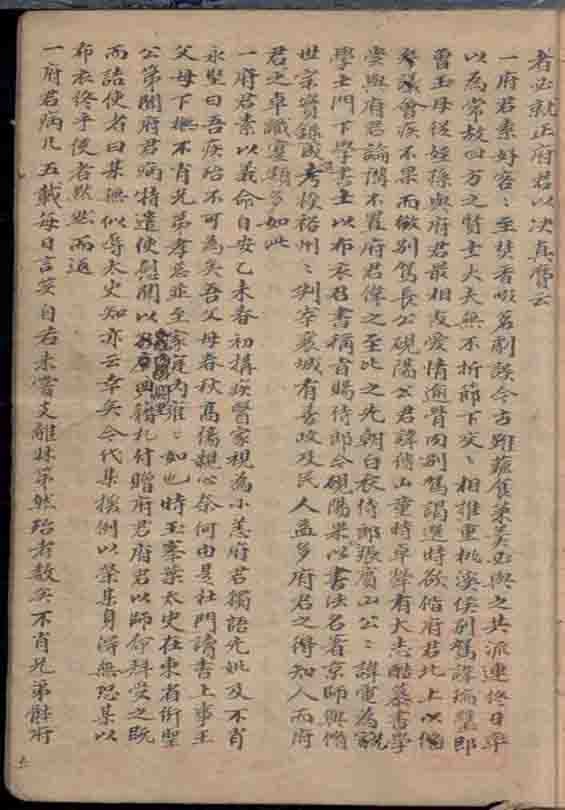 者必就正府君以決真贋云
一府君素好客〻至焚香啜茗劇談今古雖蔬食菜羹必與之共流連終日率
以為常故四方之賢士大夫無不折節下交〻相推重桃溪侯別駕諱瑞壁即
曾王母從姪孫與府君最相友愛情逾骨肉別駕謁選時欲偕府君北上以偶
會疾不果而散別駕長公硯陽公君諱傅山童時卓犖有大志酷慕書學
嘗與府君論隲不置府君偉之至此之先朝白衣侍郎張賓山公〻諱電為
學士門下學書士以布衣召書稱旨賜侍郎今硯陽果以書法名著京師與脩
世宗實錄成考授裕州〻判宰襄城有善政及民人益多府君之得知人而府
君之卓識蹇類多如此
一府君素以義命自安乙未春初搆疾醫家視為小恙府君獨語先妣及不肖
永壁曰吾疾殆不可為矣吾父母春秋高傷親心奈何由是杜門讀書上事王
父母下撫不肖兄弟孝慈並至家庭內雍〻如也時玉峯葉太史在東省術聖
公第關府君病特遣使慰問以典籍札付贈府君府君以師命拜受之既
而語使者曰某無似辱太史知亦云幸矣今代某援例以榮某身得無忍某以
布衣終乎使者默然而返
一府君病凡五載每日言笑自若未嘗支離牀笫然殆者數矣不肖兄弟